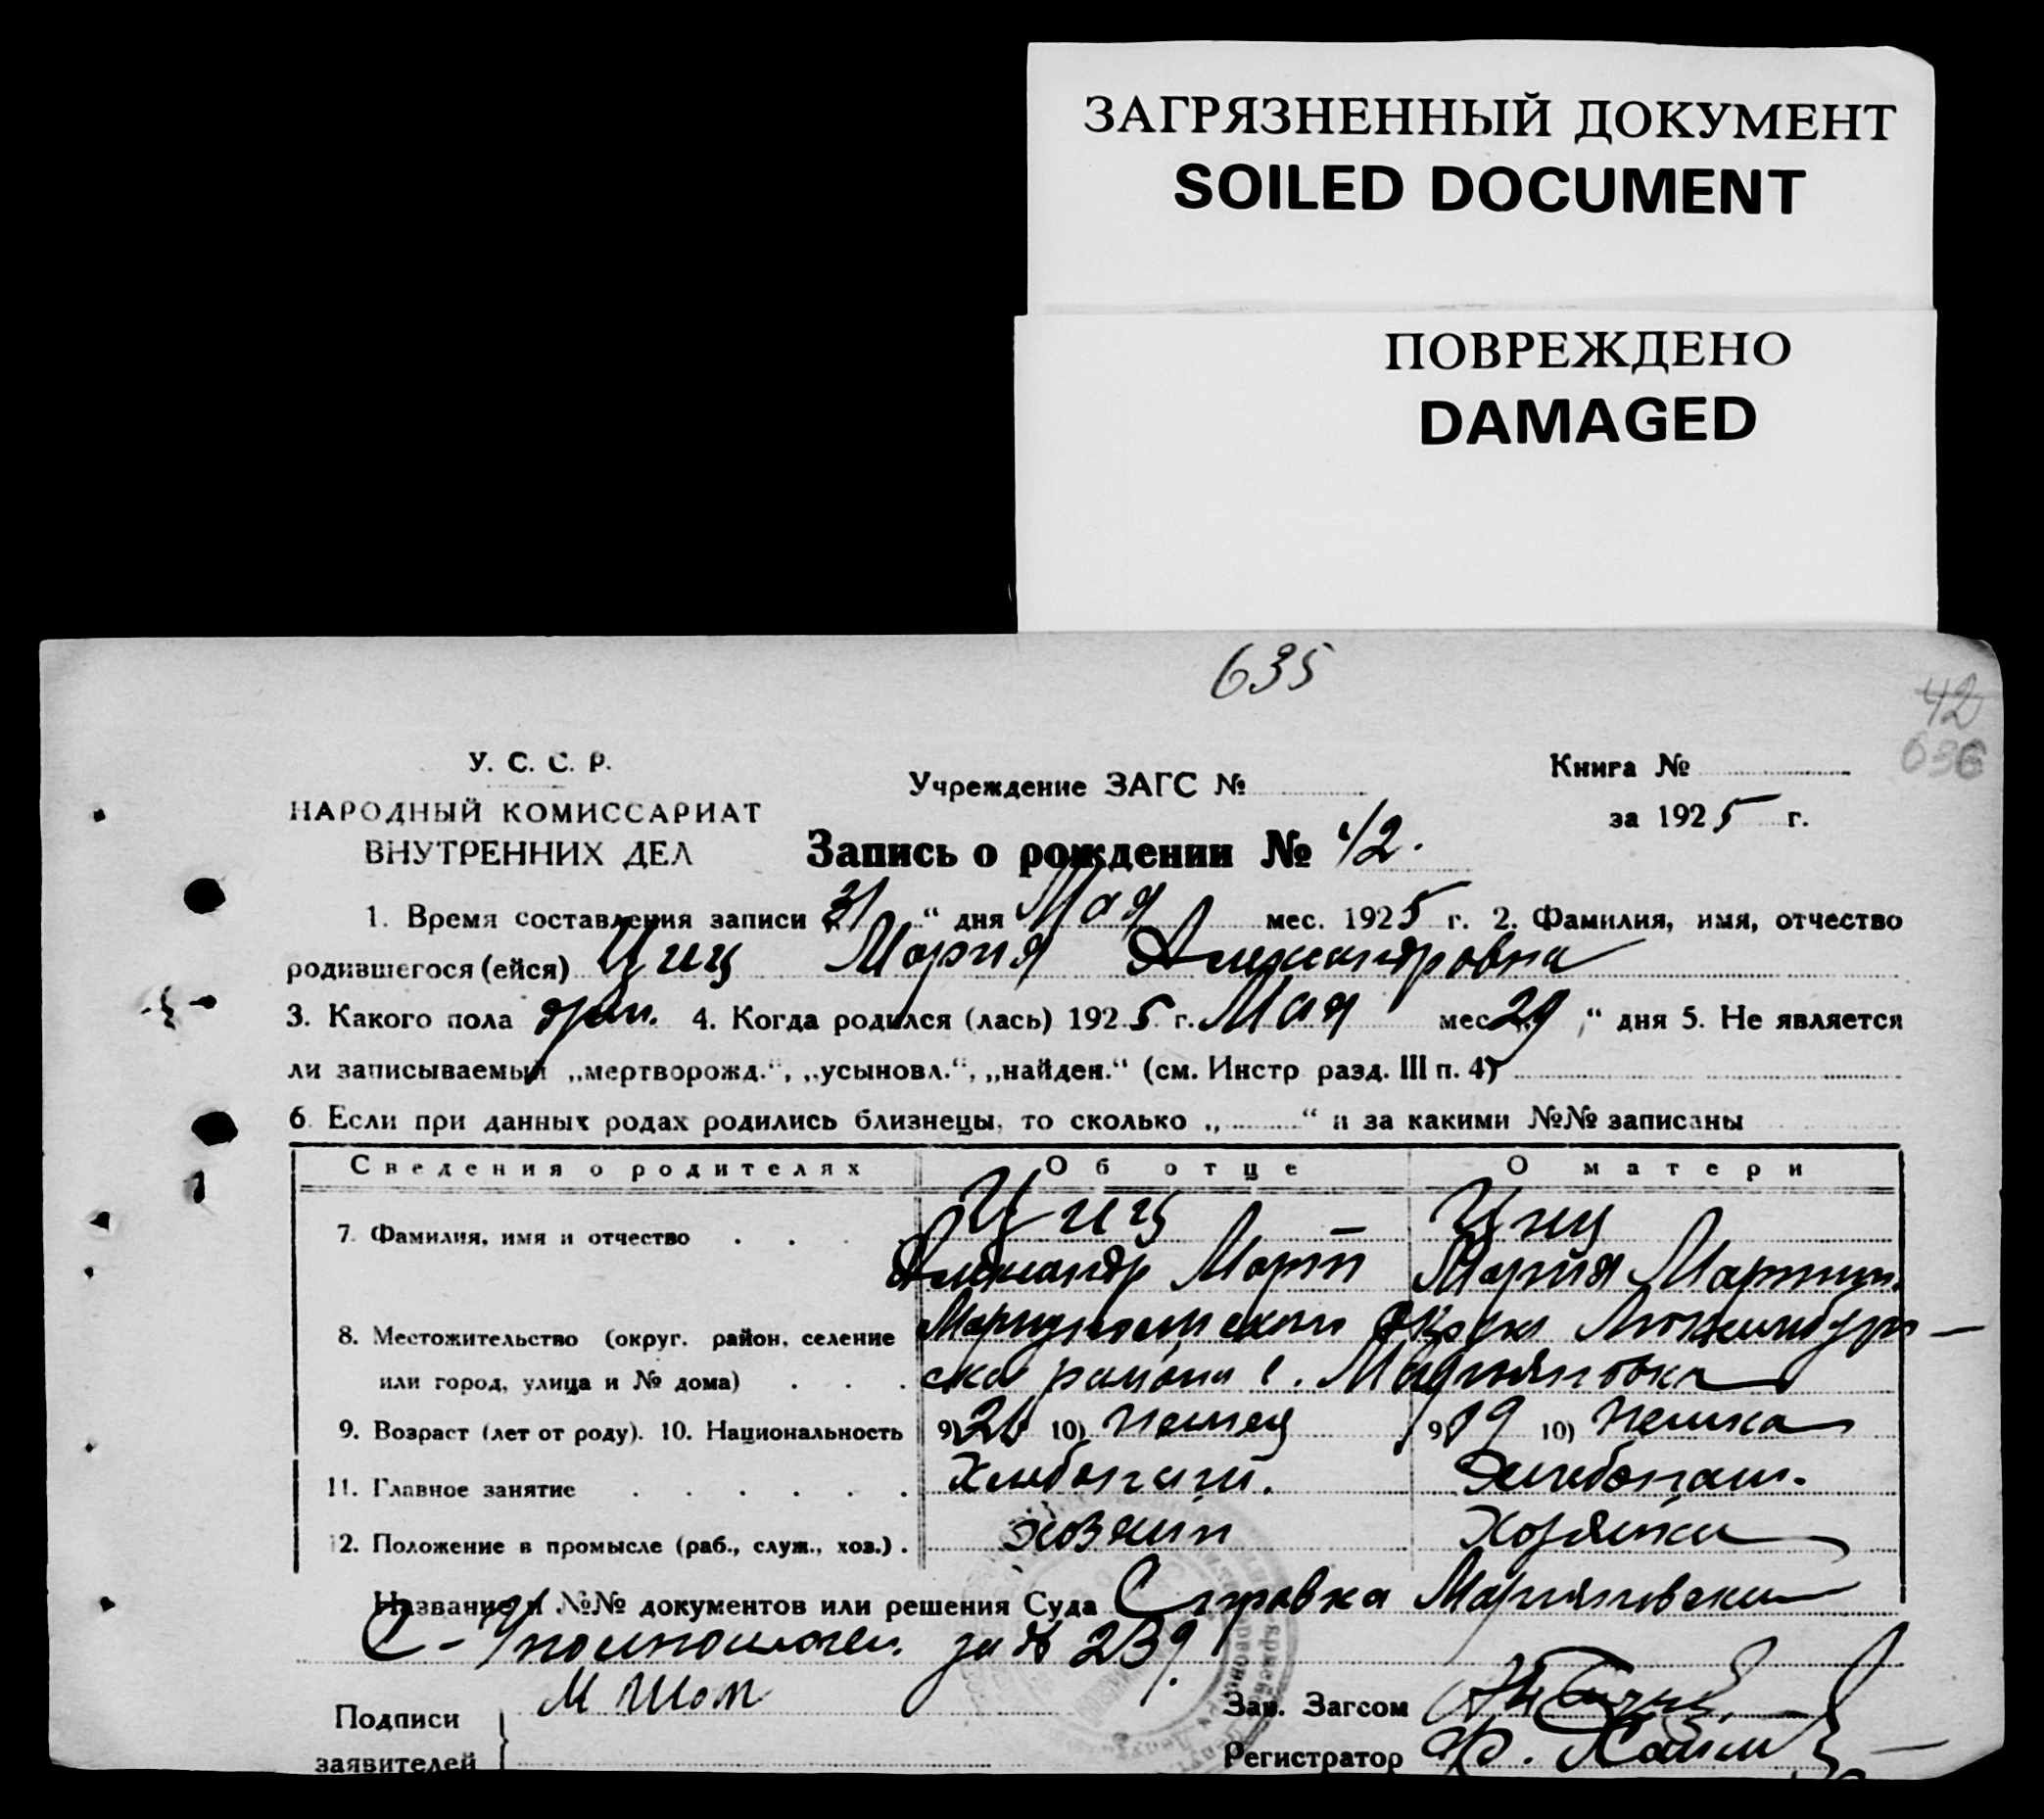 ЗАГРЯЗНЕННЫЙ ДОКУМЕНТ
SOILED DOCUMENT
ПОВРЕЖДЕНО
DAMAGED
635
42
636
У. С. С. Р.
НАРОДНЫЙ КОМИССАРИАТ
ВНУТРЕННИХ ДЕЛ
Учреждение ЗАГС №
Книга №
за 1925 г.
Запись о рождении № 42.
1. Время составления записи 31 " дня Мая мес. 1925 г. 2. Фамилия, имя, отчество
родившегося (ейся) Циц Мария Александровна
3. Какого пола жен. 4. Когда родился (лась) 1925 г. Мая мес. 29 " дня 5. Не является
ли записываемый „мертворожд.", „усыновл.", „найден." (см. Инстр разд. III п. 4)
6. Если при данных родах родились близнецы, то сколько „ " и за какими №№ записаны
Сведения о родителях Об отце О матери
7. Фамилия, имя и отчество Циц Циц
Александр Март Мария Мартин.
8. Местожительство (округ. район, селение Мариупольский округ Люксембург
или город, улица и № дома) ского района с. Марьяновка
9. Возраст (лет от роду). 10. Национальность 9) 10) немец 9) 19 10) немка
11. Главное занятие Хлебопаш. Хлебопаш.
12. Положение в промысле (раб., служ., хоз.) хозяин Хозяйка
Название и №№ документов или решения Суда Справка Марьяновский
С- за № 239.
Подписи
заявителей
Зав. Загсом
Регистратор